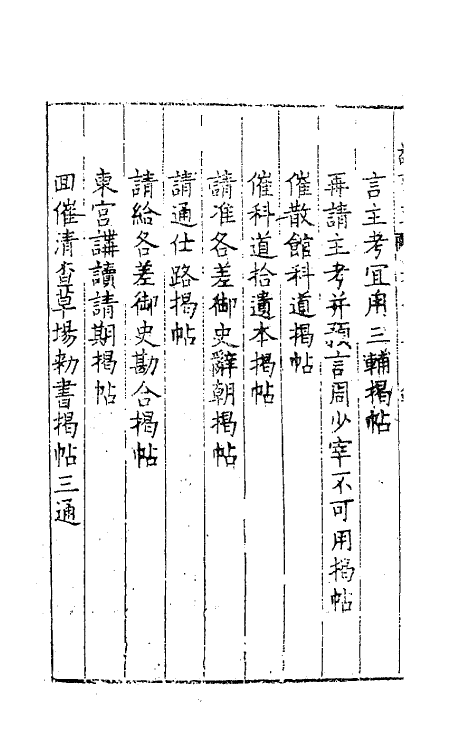 言主考宜用三輔揭帖
再請主考并預言周少宰不可用揭帖
催散館科道揭帖
催科道拾遺本揭帖
請准各差御史辭朝揭帖
請通仕路揭帖
請給各差御史勘合揭帖
東宮講讀請期揭帖
回催清查草場勑書揭帖三通